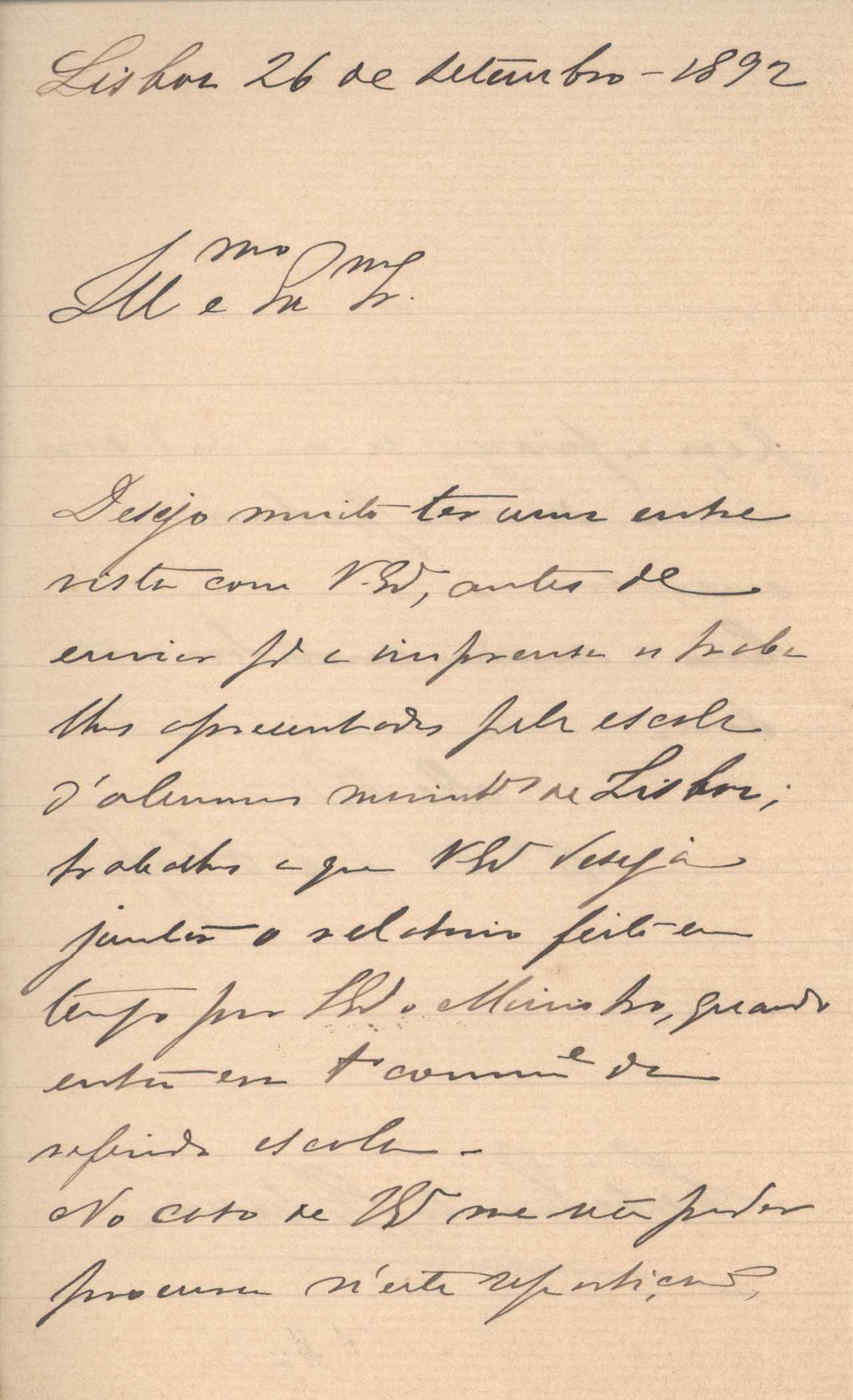 Lisboa 26 de setembro - 1892
Ill^mo e Ex^mo Sr.
Desejo muito ter uma entre
vista com V. Ex^a, antes de
enviar p^a a imprensa os traba
lhos apresentados pela escola
d'alumnos marinh^os de Lisboa;
trabalhos a que V Ex^a deseja
juntar o relatorio feito em
tempo por S Ex^a o Ministro, quando
então era 1º comm^e da
referida escola -
No caso de V Ex^a me não poder
procurar n'esta repartição,